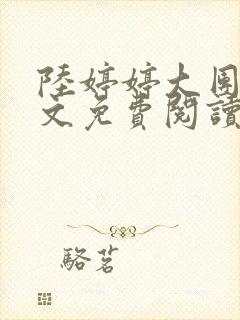 陸婷婷大圍
文免費閱讀
駱茗